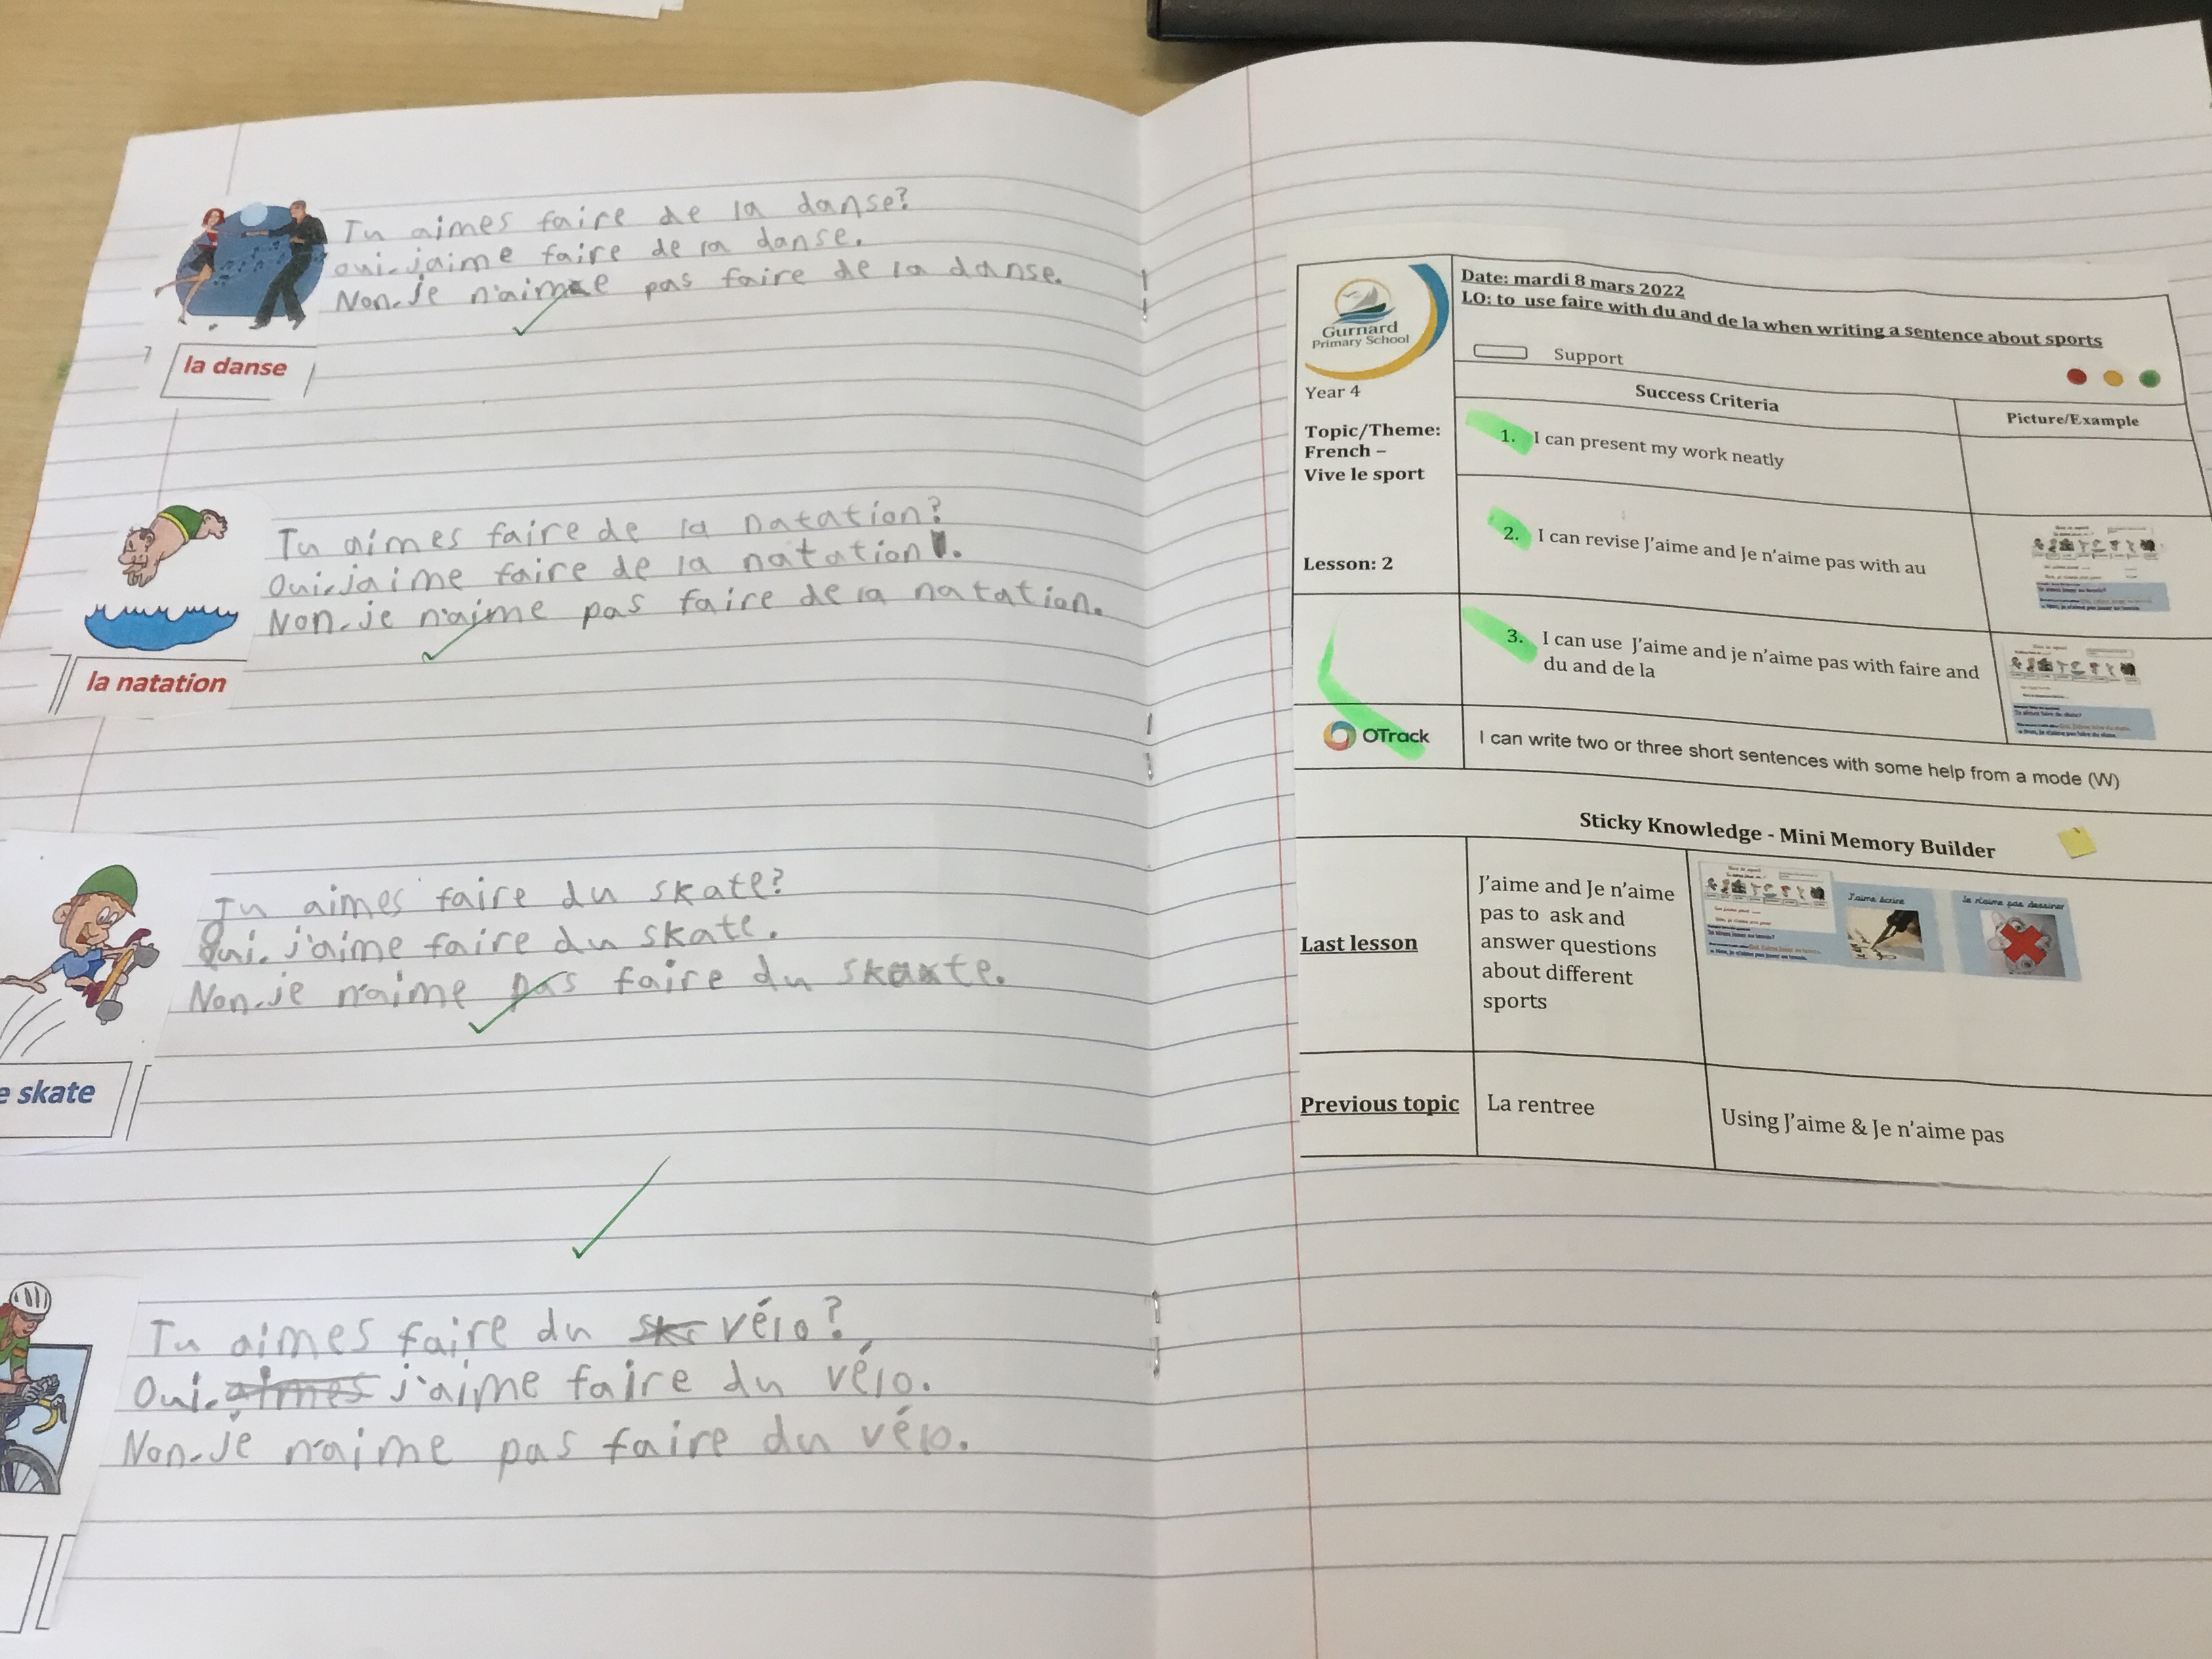 Tu aimes faire de la danse?
oui, jaime faire de la danse.
Non, Je n'aime pas faire de la danse.
la danse
Tu aimes faire de la natation?
Oui, jaime faire de la natation.
Non, je n'aime pas faire de la natation.
la natation
Tu aimes faire du skate?
Oui, j'aime faire du skate.
Non, je n'aime pas faire du skate.
e skate
Tu aimes faire du vélo?
Oui, aimes j'aime faire du vélo.
Non, je n'aime pas faire du vélo.
Gurnard
Primary School
Year 4
Topic/Theme:
French –
Vive le sport
Lesson: 2
Date: mardi 8 mars 2022
LO: to use faire with du and de la when writing a sentence about sports
Support
Success Criteria
Picture/Example
1. I can present my work neatly
2. I can revise J'aime and Je n'aime pas with au
3. I can use J'aime and je n'aime pas with faire and
du and de la
OTrack
I can write two or three short sentences with some help from a mode (W)
Sticky Knowledge - Mini Memory Builder
Last lesson
J'aime and Je n'aime
pas to ask and
answer questions
about different
sports
J'aime écrire
Je n'aime pas dessiner
Previous topic
La rentree
Using J'aime & Je n'aime pas